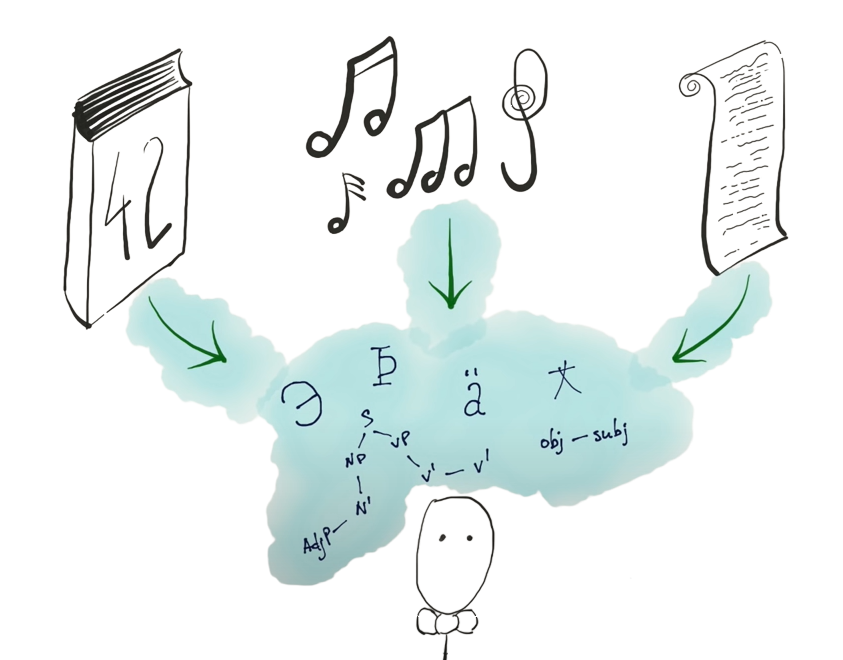 42
Э Φ ä 大
S
NP VP
V' V'
N'
AdjP
obj — subj